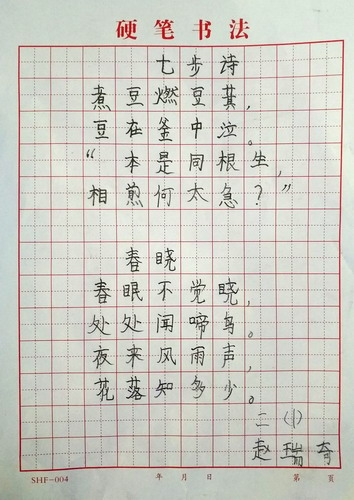 硬笔书法
七步诗
煮豆燃豆萁,
豆在釜中泣。
“本是同根生,
相煎何太急?”
春晓
春眠不觉晓,
处处闻啼鸟。
夜来风雨声,
花落知多少。
二(1)
赵瑞奇
SHF-004 年 月 日 第 页